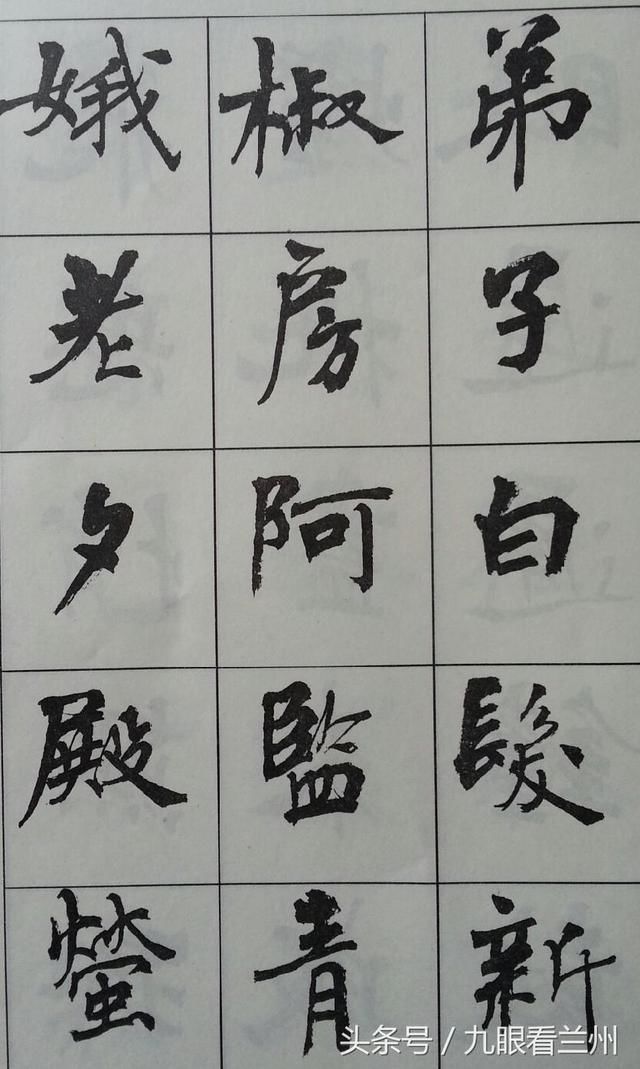 弟子白髮新
椒房阿監青
娥老夕殿螢
头条号 / 九眼看兰州